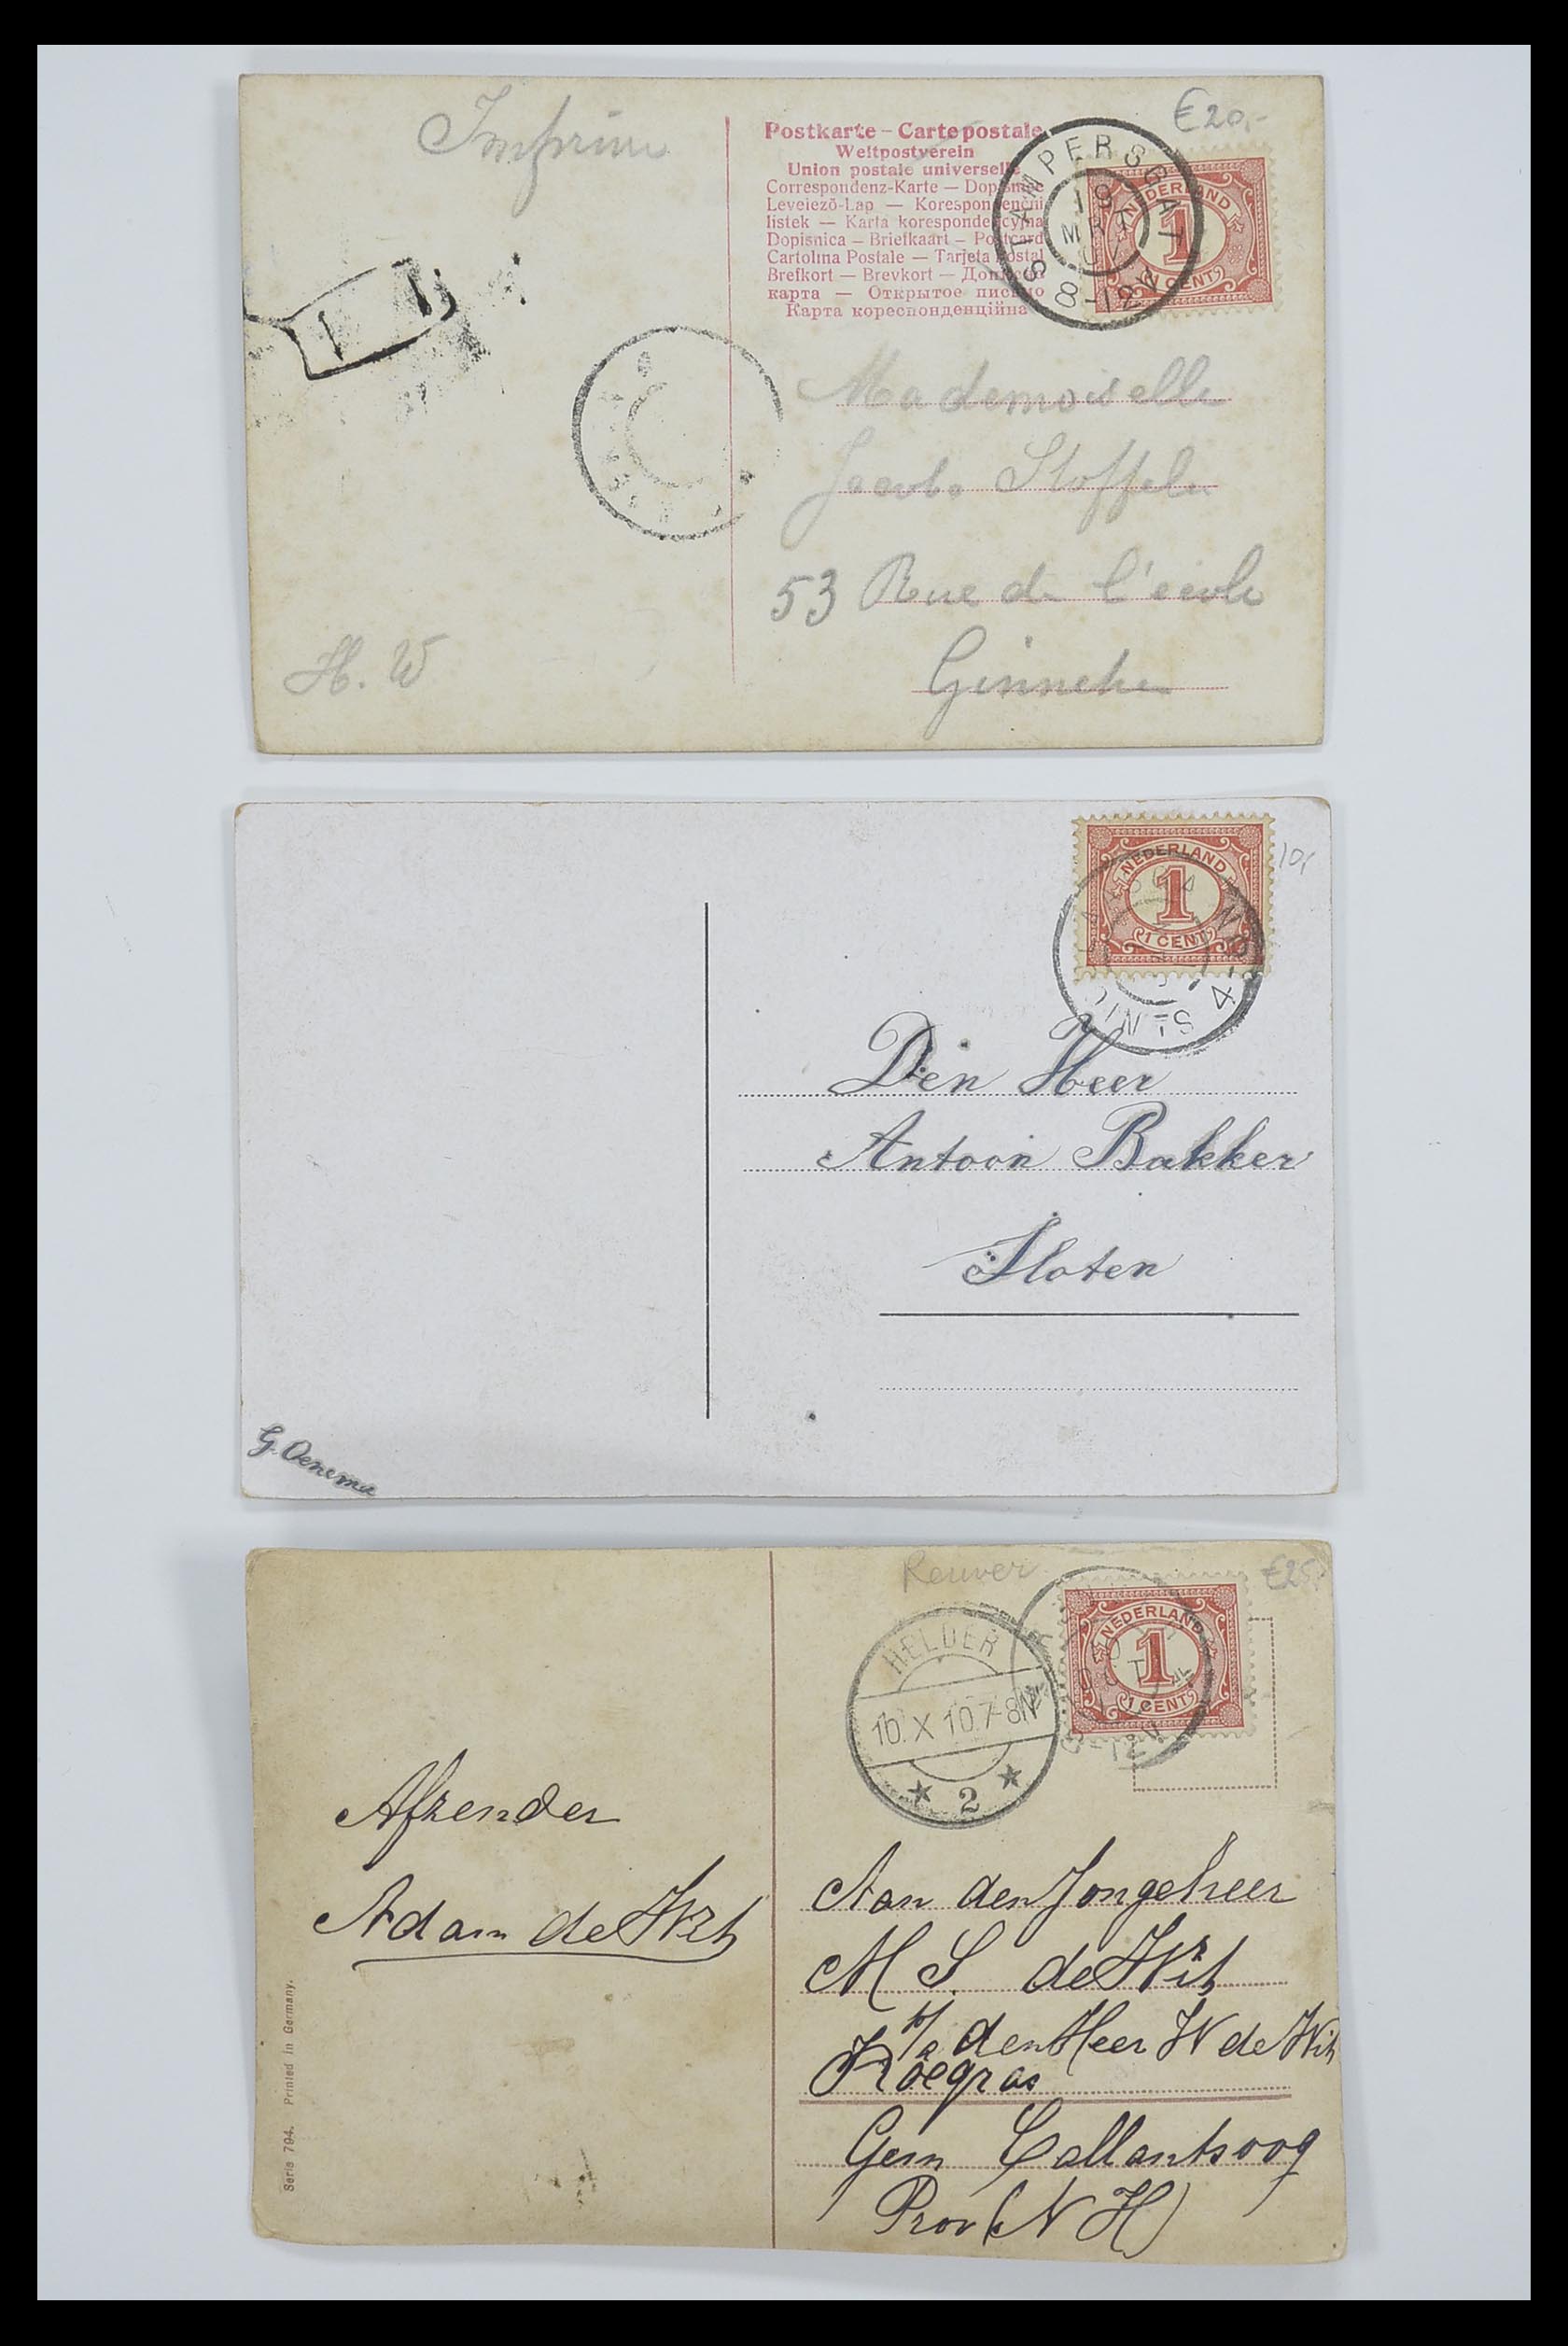 Imprimé
€20,-
Postkarte – Carte postale
Weltpostverein
Union postale universelle
Correspondenz-Karte — Dopisnice
Levelező-Lap — Korespondencni
listek — Karta korespondencyjna
Dopisnica — Briefkaart — Postcard
Cartolina Postale — Tarjeta postal
Brefkort — Brevkort —
карта — Открытое письмо
Карта кореспонденційна
STAMPERSGAT
19
MRT
8-12V
NEDERLAND
1
1 CENT
Mademoiselle
Jacoba Stoffels
53 Rue de l'école
Ginneken
H. W
10,
NEDERLAND
1
1 CENT
Den Heer
Antoon Bakker
Sloten
G. Oenema
Reuver
€25,-
HELDER
10.X 10.7-8N
* 2 *
NEDERLAND
1
1 CENT
Afzender
Adam de Wit
Aan den Jongeheer
M S. de Wit
p/a den Heer W de Wit
Koegras
Gem Callantsoog
Prov (N H)
Serie 794. Printed in Germany.